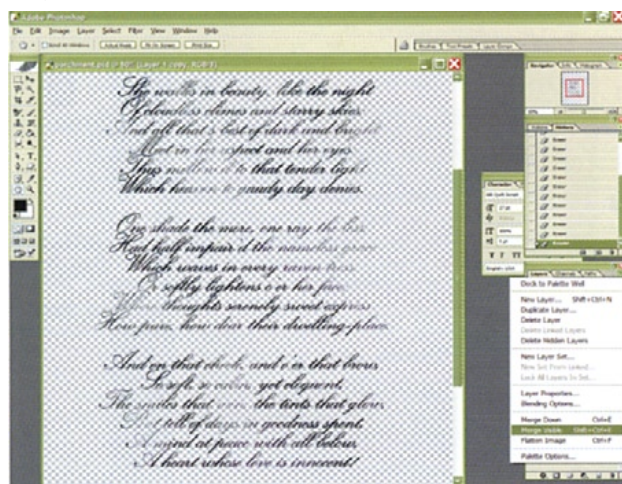 Adobe Photoshop
File Edit Image Layer Select Filter View Window Help
Actual Pixels Fit On Screen Print Size
Brushes Tool Presets Layer Comps
parchment.psd @ 50% (Layer 1 copy, RGB/8)
She walks in beauty, like the night
Of cloudless climes and starry skies,
And all that's best of dark and bright
Meet in her aspect and her eyes
Thus mellow'd to that tender light
Which heaven to gaudy day denies.
One shade the more, one ray the less
Had half impair'd the nameless grace
Which waves in every raven tress
Or softly lightens o'er her face
Where thoughts serenely sweet express
How pure, how dear their dwelling-place.
And on that cheek, and o'er that brow,
So soft, so calm, yet eloquent,
The smiles that win, the tints that glow,
But tell of days in goodness spent,
A mind at peace with all below,
A heart whose love is innocent!
Navigator Info Histogram
History
Eraser
Eraser
Eraser
Eraser
Eraser
Eraser
Eraser
Eraser
Character
Layers Channels Paths
Dock to Palette Well
New Layer... Shift+Ctrl+N
Duplicate Layer...
Delete Layer
Delete Linked Layers
Delete Hidden Layers
New Layer Set...
New Set From Linked...
Lock All Layers In Set...
Layer Properties...
Blending Options...
Merge Down Ctrl+E
Merge Visible Shift+Ctrl+E
Flatten Image Ctrl+F
Palette Options...